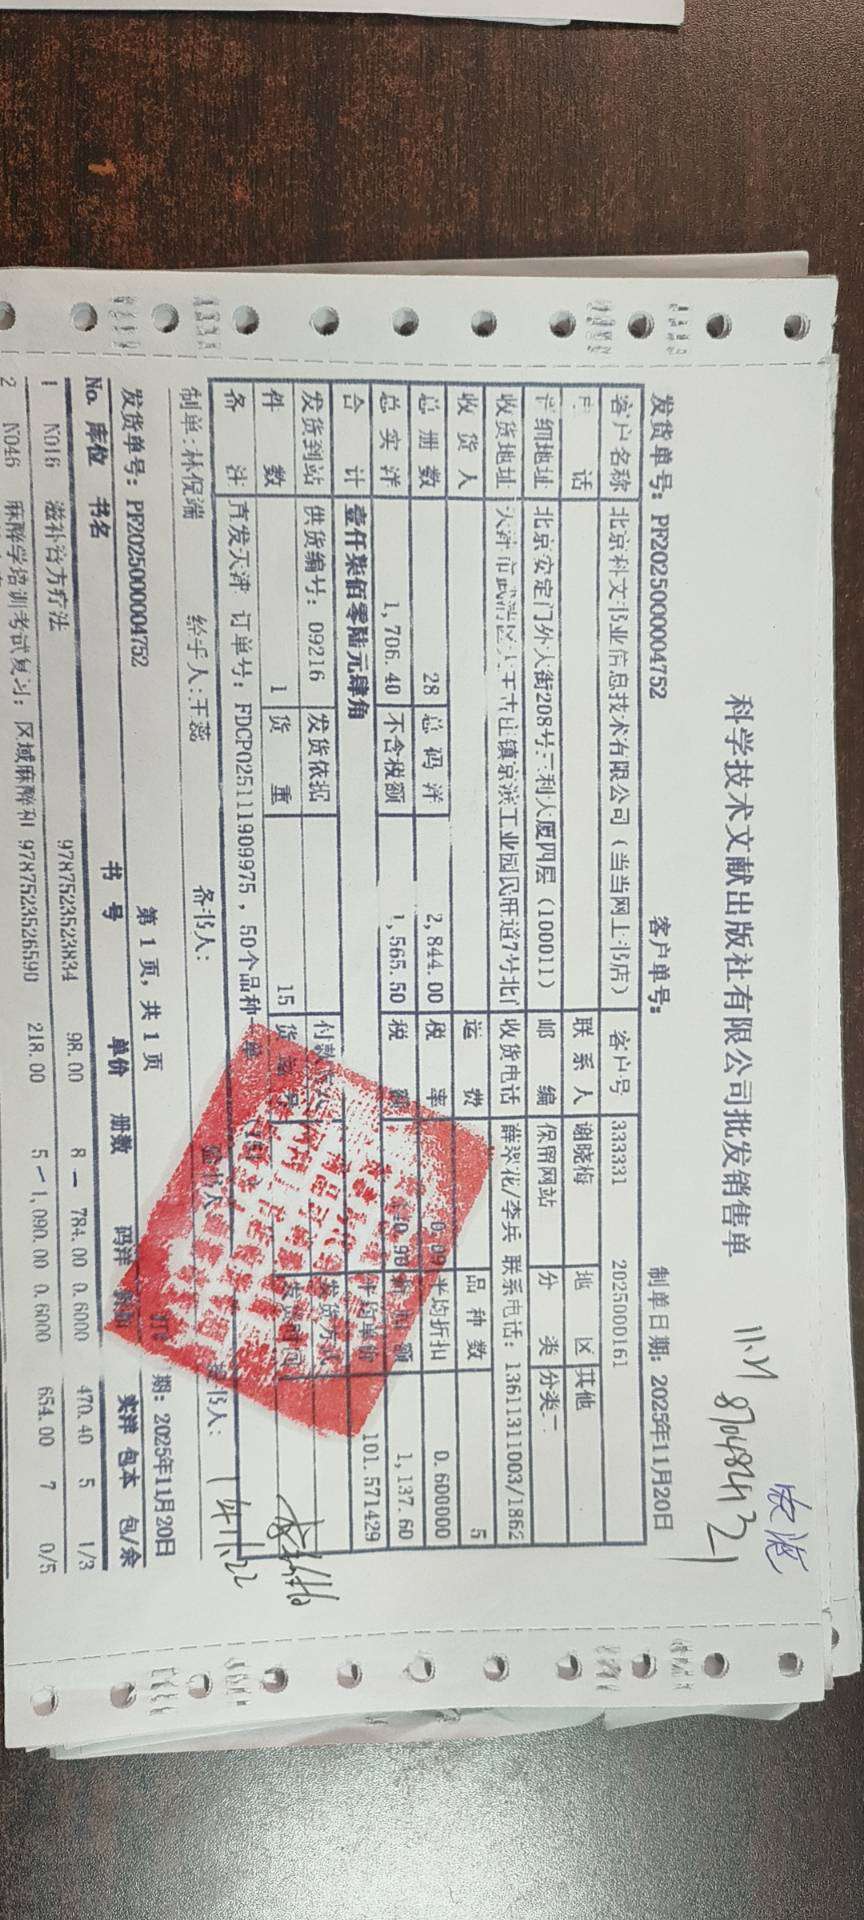 科学技术文献出版社有限公司批发销售单
发货单号：PF2025000004752 客户单号： 制单日期：2025年11月20日
客户名称 北京科文书业信息技术有限公司（当当网上书店） 客户号 333331 2025000161
话 联系人 谢晓梅 地区 其他
详细地址 北京安定门外大街208号三利大厦四层（100011） 邮编 保留网站 分类 分类二
收货地址 天津市武清区大王古庄镇京滨工业园民旺道7号北门 收货电话 薛翠花/李兵 联系电话：13611311003/1862
收货人 运费 品种数 5
总册数 28 总码洋 2,844.00 税率 0.09 平均折扣 0.600000
总实洋 1,706.40 不含税额 1,565.50 税额 折扣额 1,137.60
合计 壹仟柒佰零陆元肆角 平均单价 101.571429
发货到站 供货编号：09216 发货依据 付款方式 发货方式
件数 1 货重 15 货运号 发货时间
备注 直发天津 订单号：FDCP025111909975，50个品种一单
制单：林倪端 经手人：王蕊 备书人：
发货单号：PF2025000004752 第 1 页，共 1 页 期：2025年11月20日
No. 库位 书名 书号 单价 册数 码洋 实洋 包本 包/余
1 N016 滋补膏方疗法 9787523523834 98.00 8 784.00 0.6000 470.40 5 1/3
2 N046 麻醉学培训考试复习：区域麻醉和 9787523526590 218.00 5 1,090.00 0.6000 654.00 7 0/5